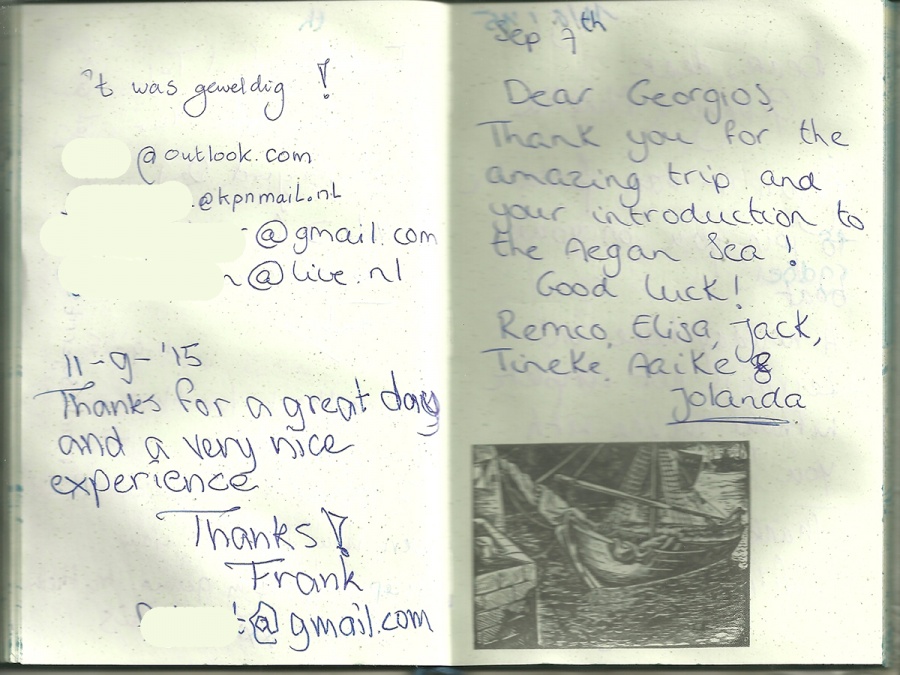 't was geweldig !
@outlook.com
.@kpnmail.nl
@gmail.com
n@live.nl
11-9-'15
Thanks for a great day
and a very nice
experience
Thanks!
Frank
@gmail.com
Sep 7th
Dear Georgios,
Thank you for the
amazing trip and
your introduction to
the Aegan Sea !
Good luck!
Remco, Elisa, Jack,
Tineke, Aaike &
Jolanda